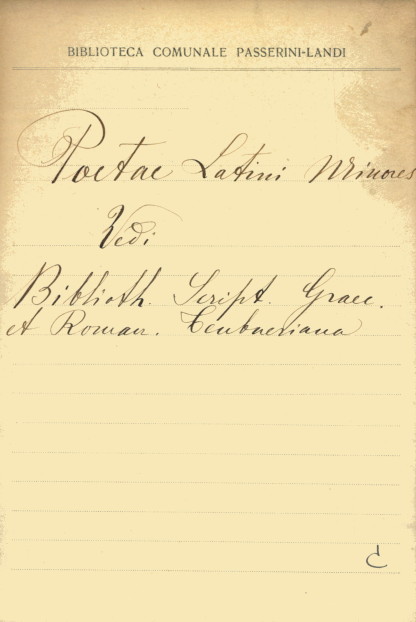 BIBLIOTECA COMUNALE PASSERINI-LANDI
Poetae Latini Minores
Vedi
Biblioth. Script. Graec.
et Roman. Teubneriana
C